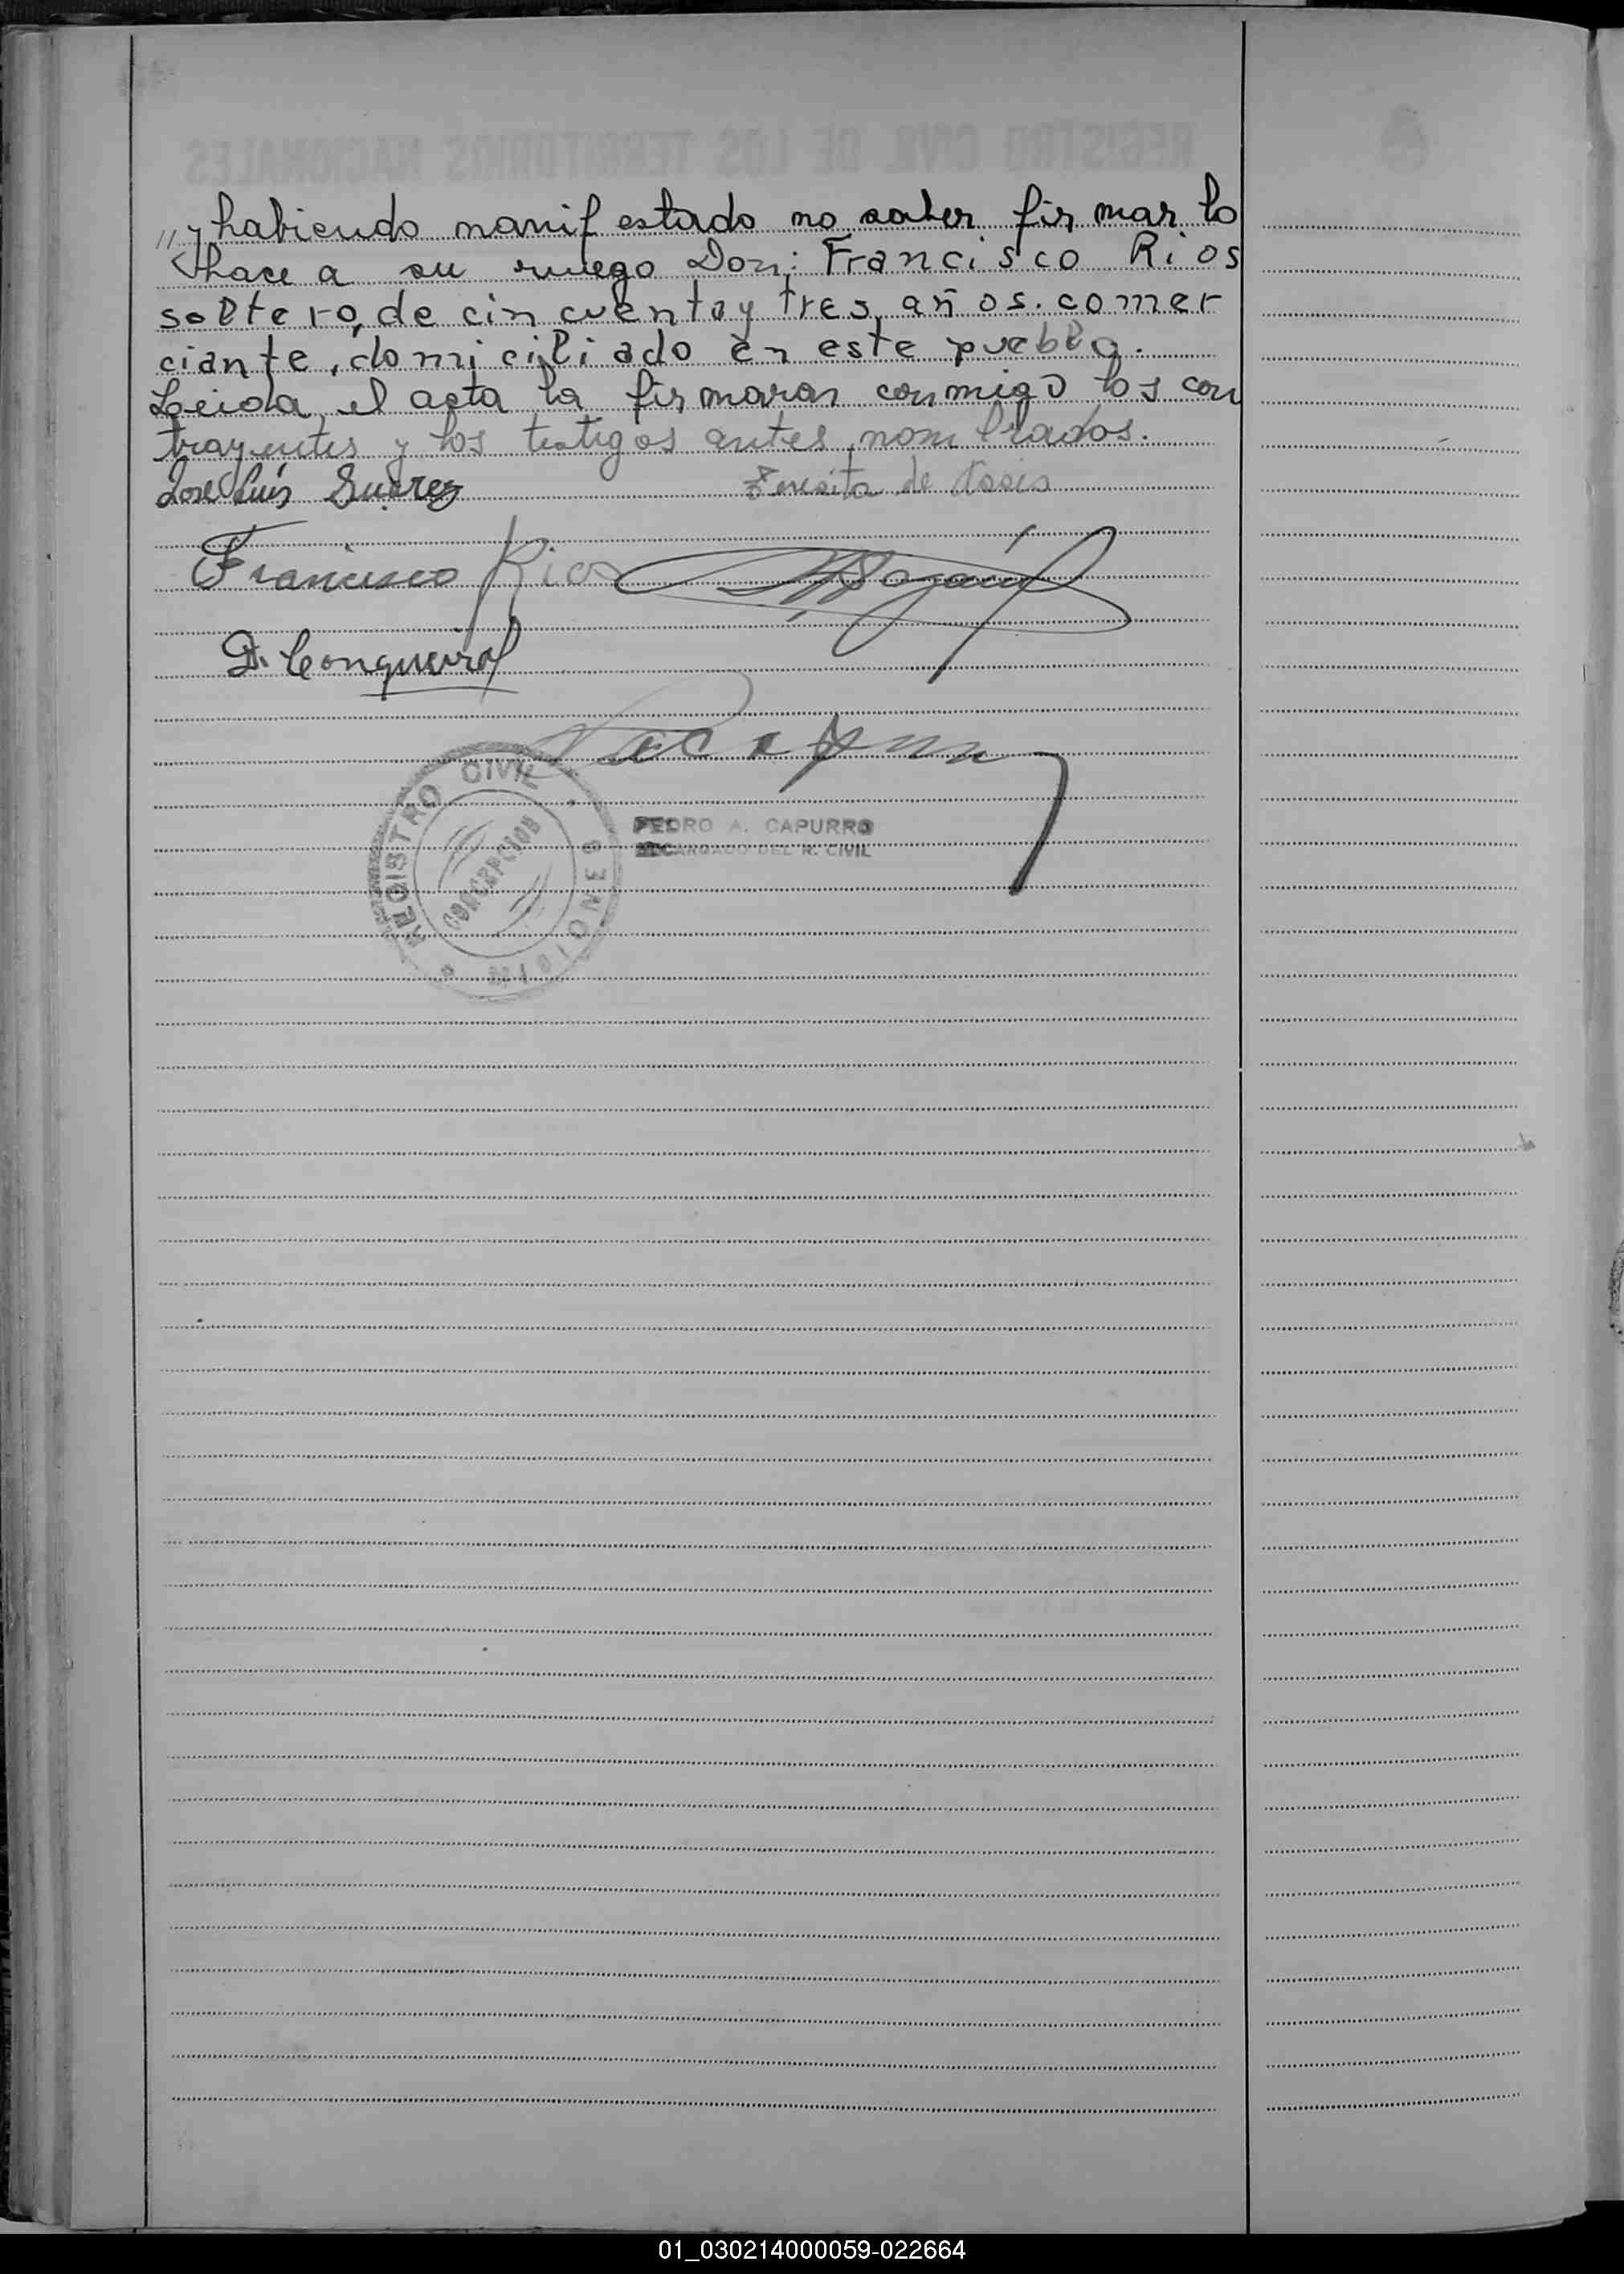 " y habiendo manifestado no saber firmar lo
hace a su ruego Don: Francisco Rios
soltero, de cincuenta y tres años. comer
ciante, domiciliado en este pueblo.
Leida el acta la firmaran conmigo los con
trayentes y los testigos antes nombrados.
José Luis Suárez Teresita de
Francisco Rios
D.
REGISTRO CIVIL
CONCEPCION
MISIONES
PEDRO A. CAPURRO
ENCARGADO DEL R. CIVIL
REGISTRO CIVIL DE LOS TERRITORIOS NACIONALES
01_030214000059-022664